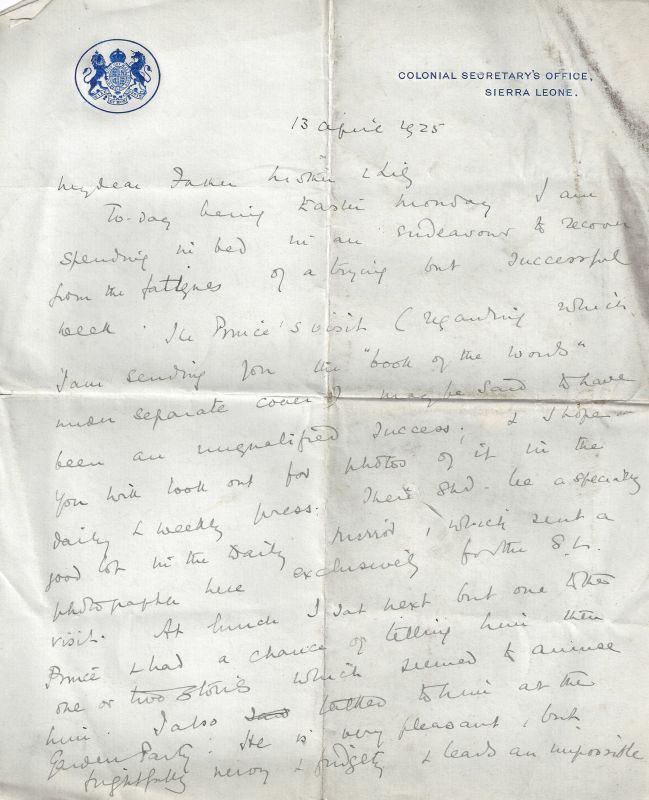 COLONIAL SECRETARY'S OFFICE,
SIERRA LEONE.
13 April 1925
My dear Father Mother &
To-day being Easter Monday I am
spending in bed in an endeavour to recover
from the fatigues of a trying but successful
week. The Prince's visit (regarding which
I am sending you the "book of the words"
under separate cover) may be said to have
been an unqualified success; & I hope
you will look out for photos of it in the
daily & weekly press. There shd. be a specially
good lot in the Daily Mirror, which sent a
photographer here exclusively for the S.L.
visit. At lunch I sat next but one to the
Prince & had a chance of telling him then
one or two stories which seemed to amuse
him. I also talked to him at the
Garden Party. He is very pleasant, but
frightfully nervy & fidgety & leads an impossible